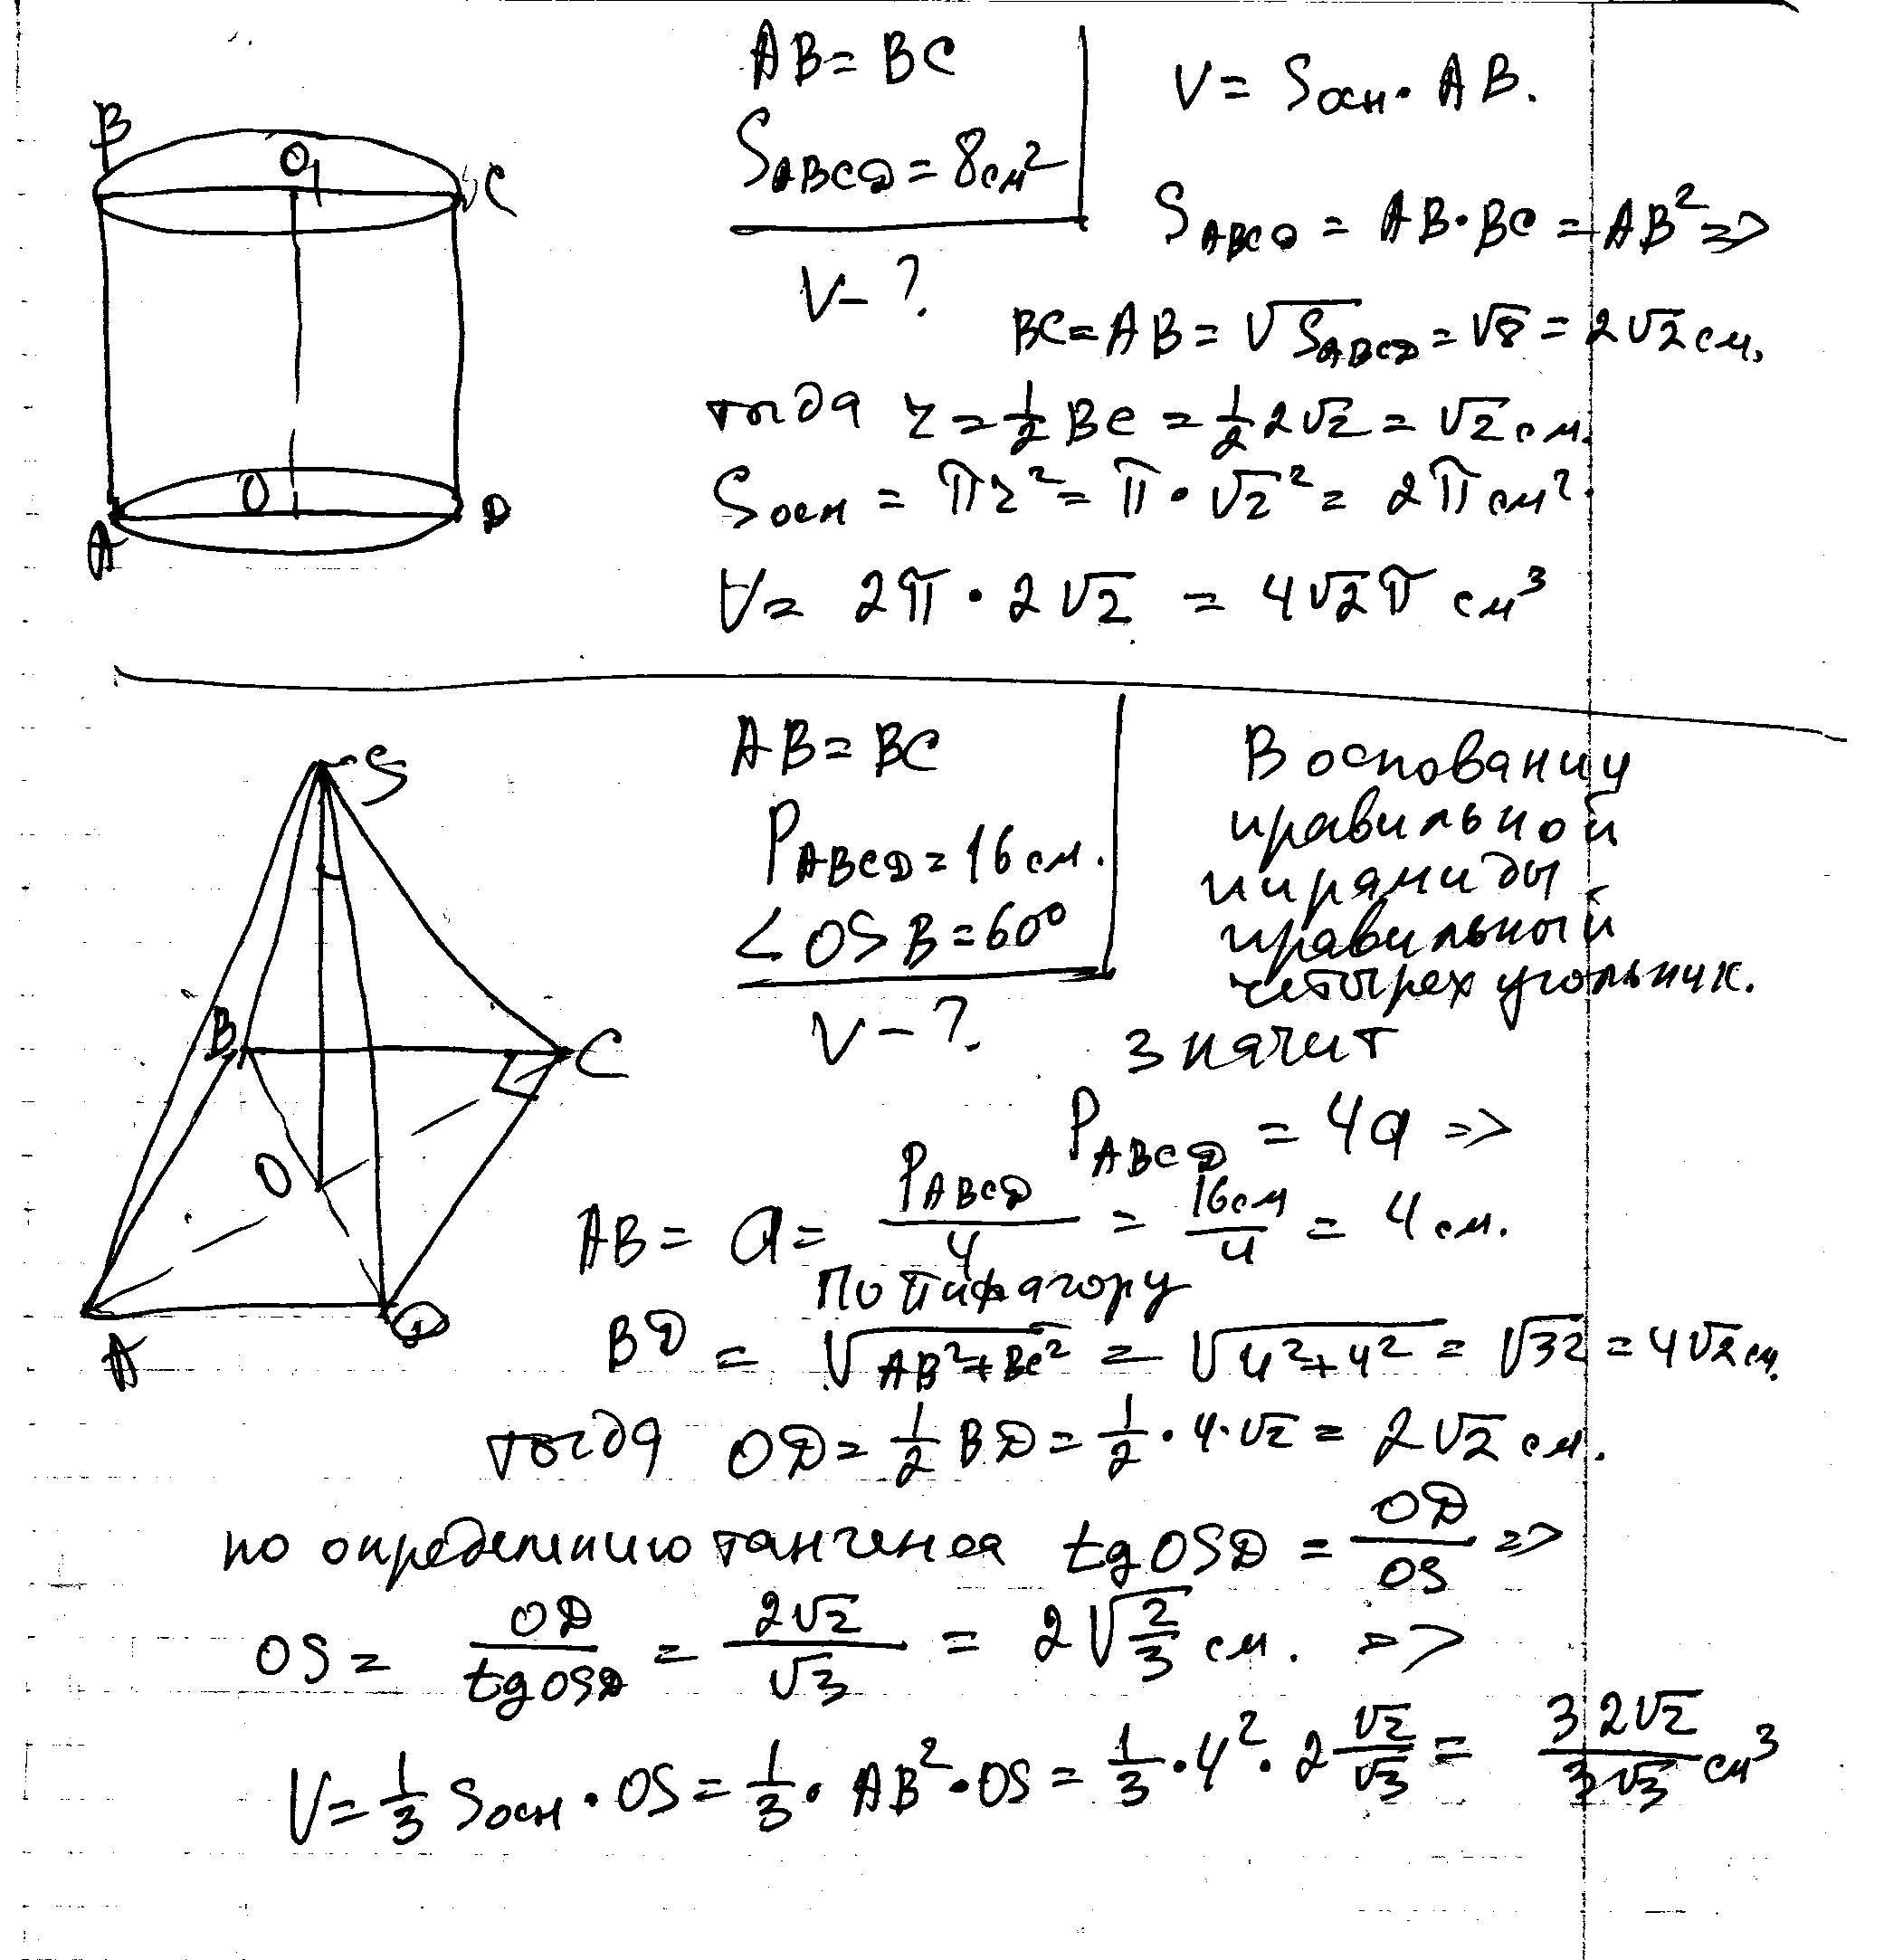 B
O₁
C
A
O
D
AB = BC
S_ABCD = 8 см²
V - ?
V = Sосн · AB.
S_ABCD = AB · BC = AB² =>
BC = AB = √S_ABCD = √8 = 2√2 см.
тогда r = 1/2 BC = 1/2 2√2 = √2 см.
Sосн = πr² = π · √2² = 2π см².
V = 2π · 2√2 = 4√2π см³
S
B
C
O
A
D
AB = BC
P_ABCD = 16 см.
∠OSB = 60°
V - ?
В основании
правильной
пирамиды
правильный
четырехугольник.
значит
P_ABCD = 4a =>
AB = a = P_ABCD/4 = 16см/4 = 4 см.
По пифагору
BD = √AB²+BC² = √4²+4² = √32 = 4√2 см.
тогда OD = 1/2 BD = 1/2 · 4·√2 = 2√2 см.
по определению тангенса tg OSD = OD/OS =>
OS = OD/tg OSD = 2√2/√3 = 2√2/3 см. =>
V = 1/3 Sосн · OS = 1/3 · AB² · OS = 1/3 · 4² · 2 √2/√3 = 32√2/3√3 см³